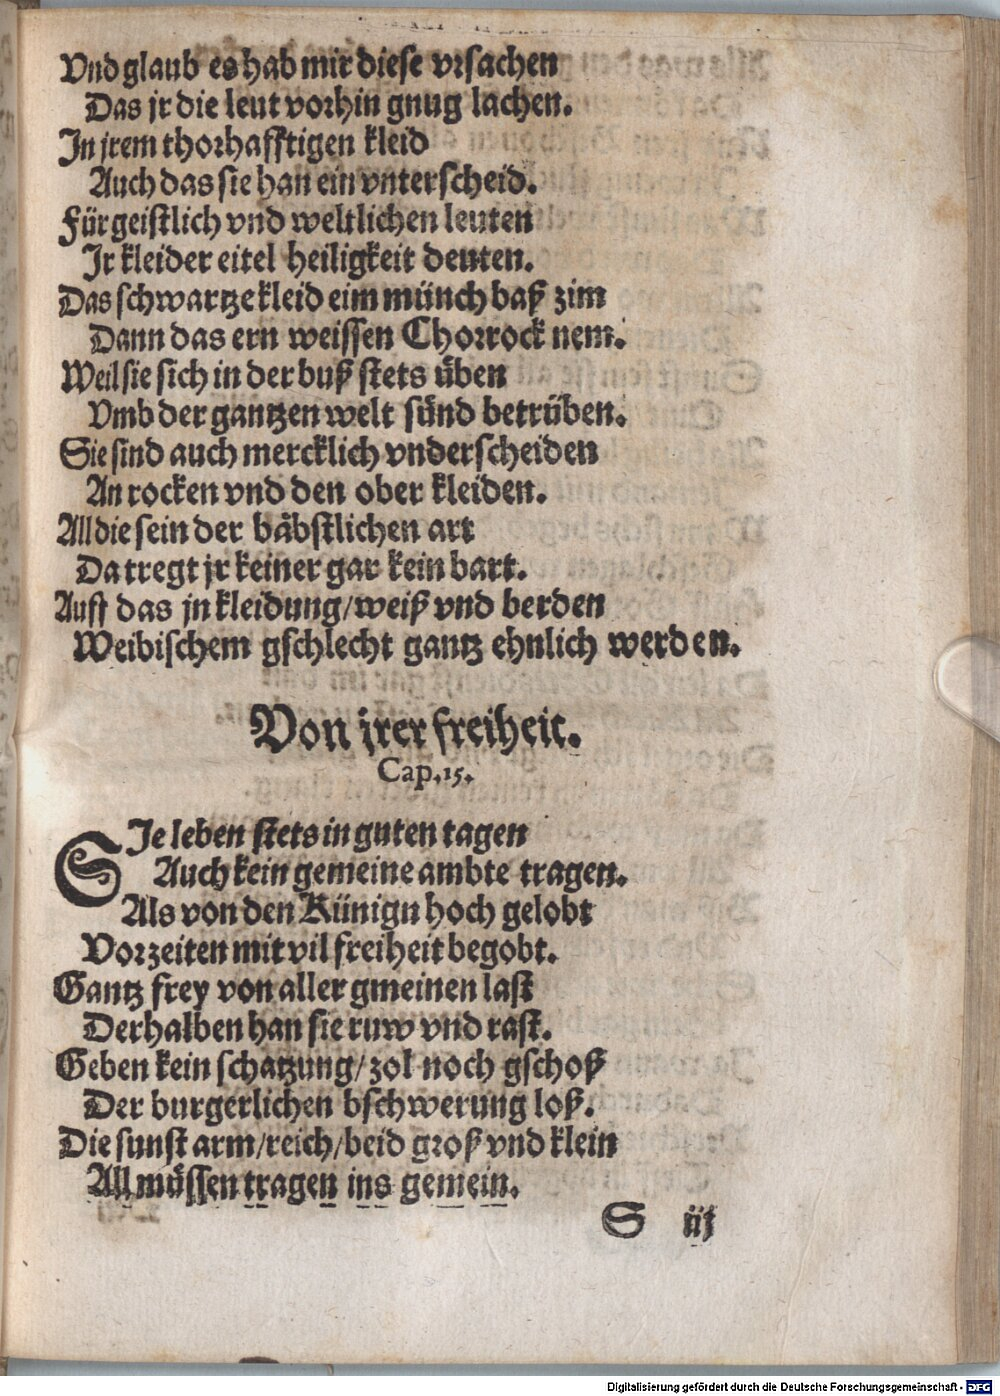 Vnd glaub es hab mir diese vrsachen
Das jr die leut vorhin gnug lachen.
In jrem thorhafftigen kleid
Auch das sie han ein vnterscheid.
Für geistlich vnd weltlichen leuten
Jr kleider eitel heiligkeit deuten.
Das schwartze kleid eim münch baß zim
Dann das ern weissen Chorrock nem.
Weil sie sich in der buß stets üben
Vmb der gantzen welt sünd betrüben.
Sie sind auch mercklich vnderscheiden
An rocken vnd den ober kleiden.
All die sein der bäbstlichen art
Da tregt jr keiner gar kein bart.
Auff das jn kleidung/weiß vnd berden
Weibischem gschlecht gantz ehnlich werden.
Von jrer freiheit.
Cap.15.
SJe leben stets in guten tagen
Auch kein gemeine ambte tragen.
Als von den Künign hoch gelobt
Vorzeiten mit vil freiheit begobt.
Gantz frey von aller gmeinen last
Derhalben han sie ruw vnd rast.
Geben kein schatzung/zol noch gschoß
Der burgerlichen bschwerung loß.
Die sunst arm/reich/beid groß vnd klein
All müssen tragen ins gemein.
S iij
Digitalisierung gefördert durch die Deutsche Forschungsgemeinschaft - DFG